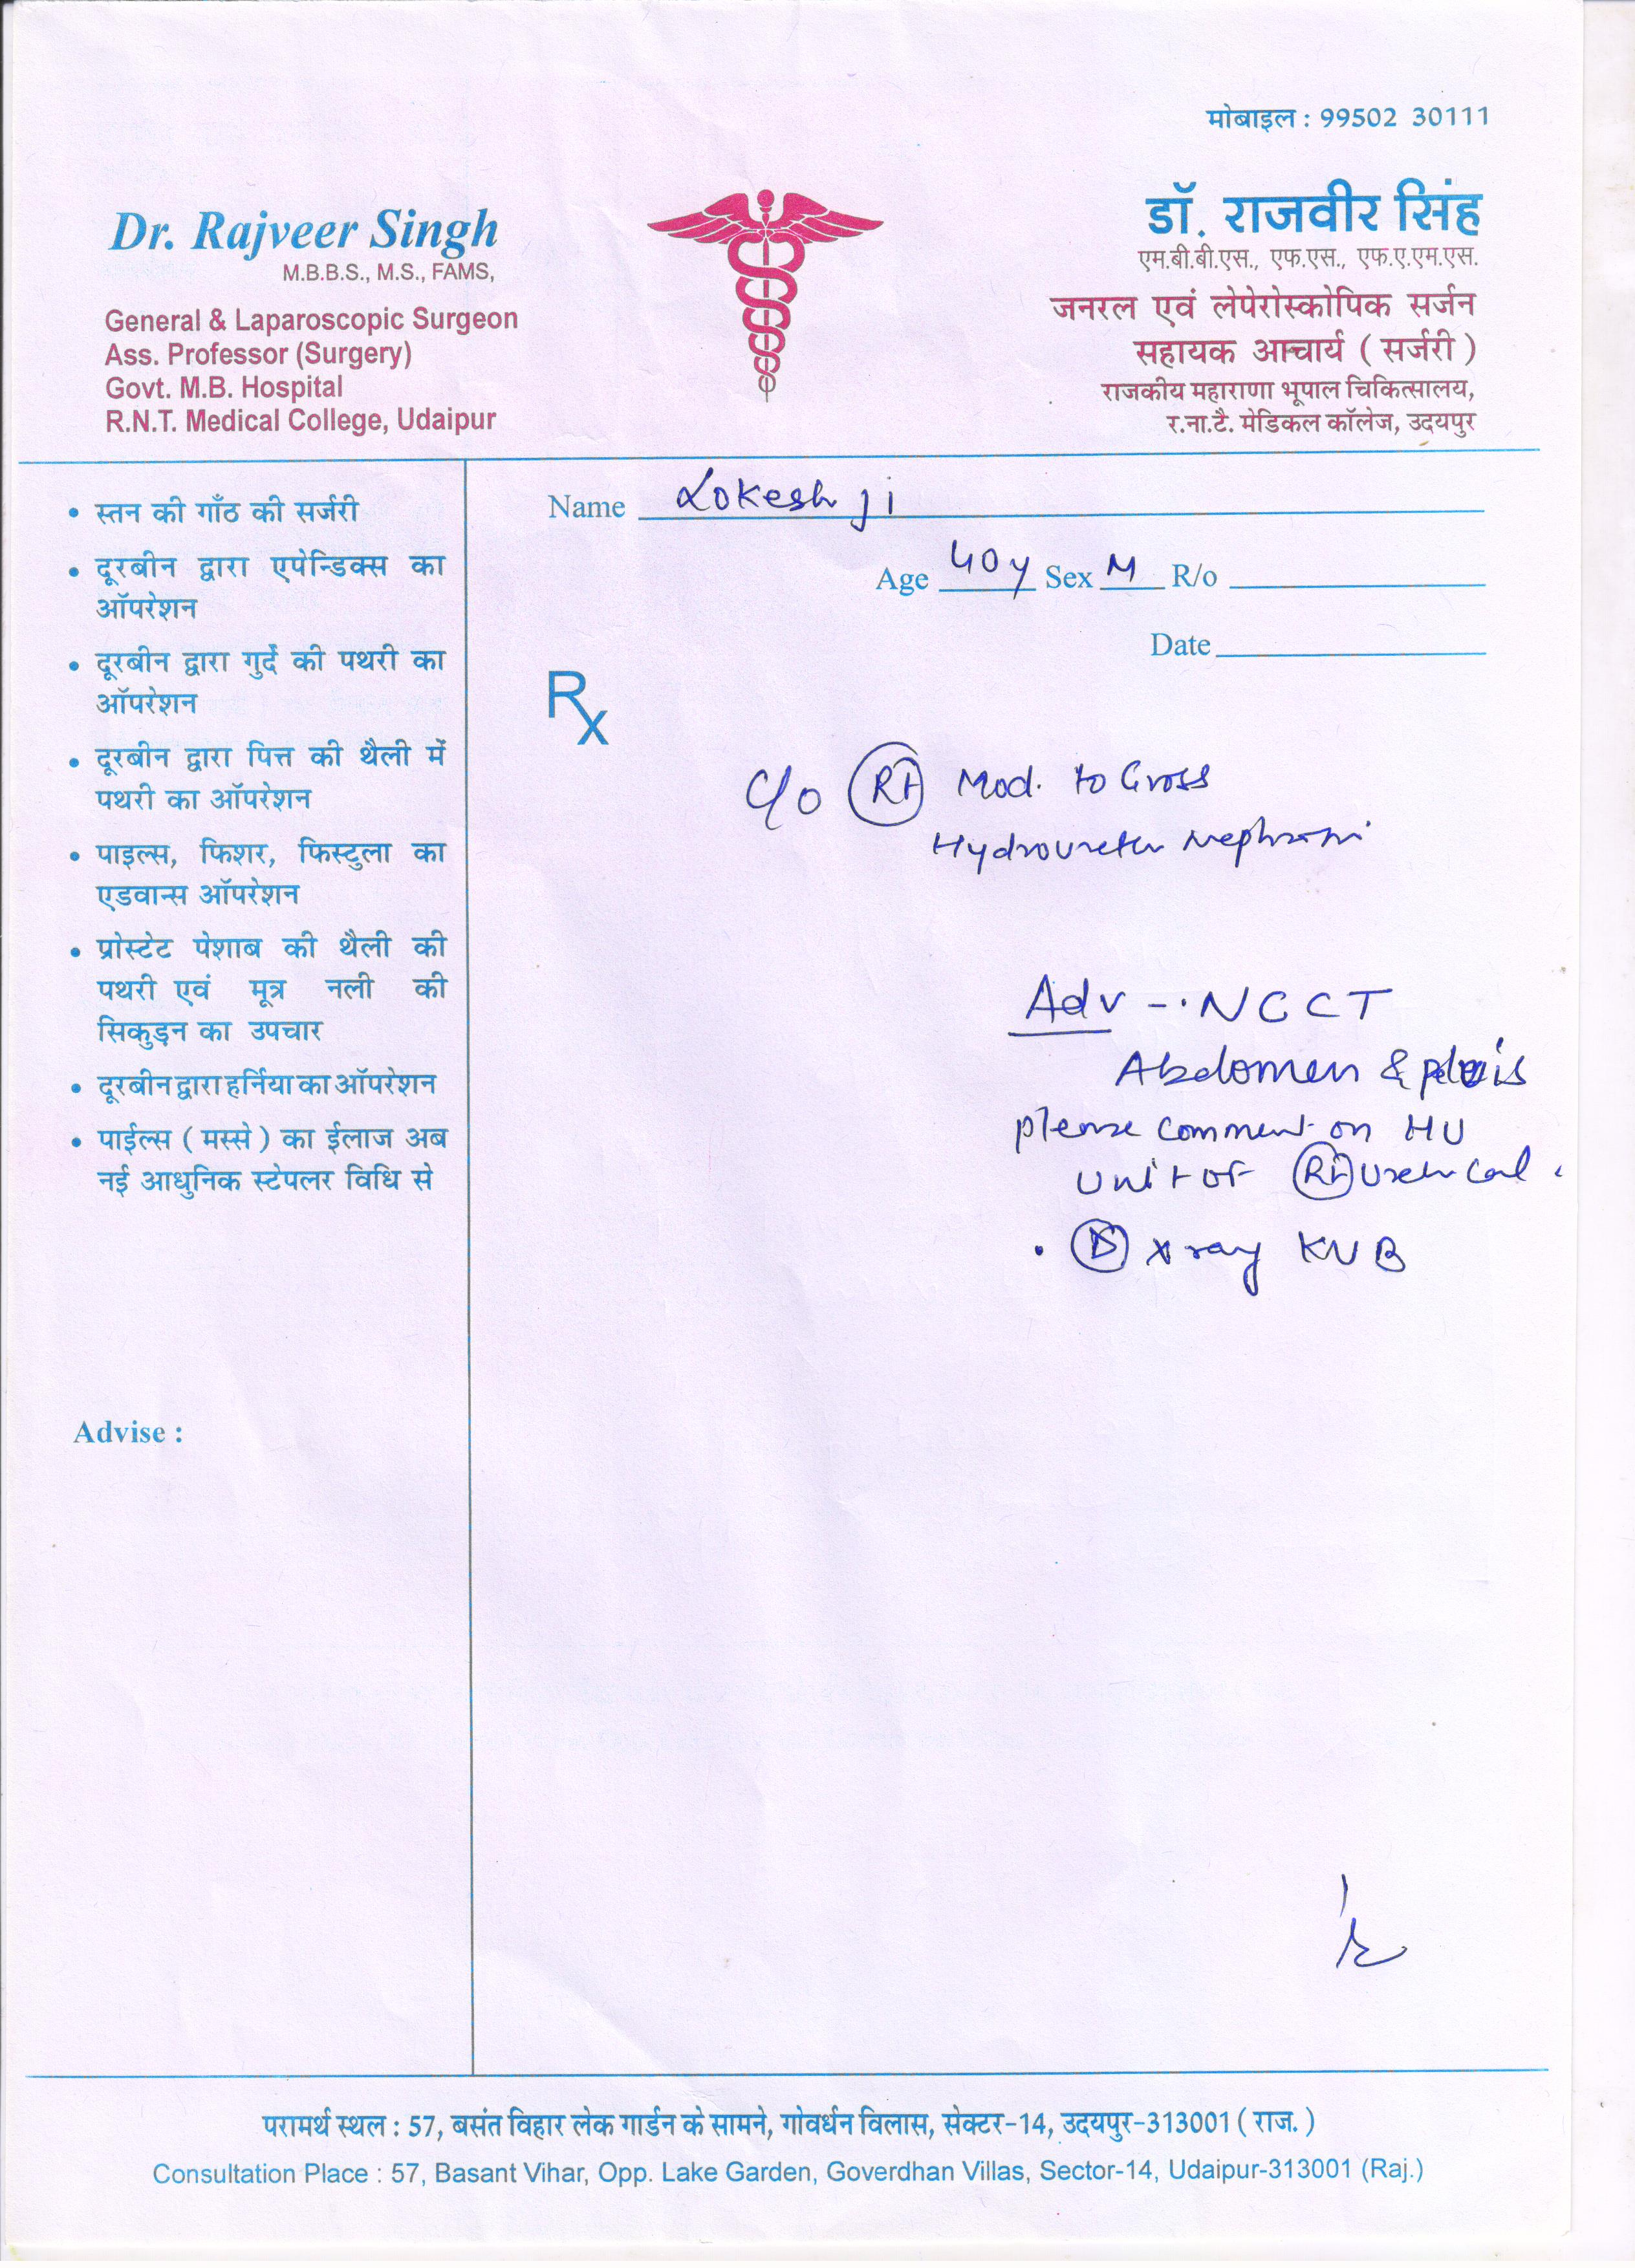 मोबाइल : 99502 30111
Dr. Rajveer Singh
M.B.B.S., M.S., FAMS,
General & Laparoscopic Surgeon
Ass. Professor (Surgery)
Govt. M.B. Hospital
R.N.T. Medical College, Udaipur
डॉ. राजवीर सिंह
एम.बी.बी.एस., एफ.एस., एफ.ए.एम.एस.
जनरल एवं लेपेरोस्कोपिक सर्जन
सहायक आचार्य ( सर्जरी )
राजकीय महाराणा भूपाल चिकित्सालय,
र.ना.टै. मेडिकल कॉलेज, उदयपुर
• स्तन की गाँठ की सर्जरी
• दूरबीन द्वारा एपेन्डिक्स का
ऑपरेशन
• दूरबीन द्वारा गुर्दे की पथरी का
ऑपरेशन
• दूरबीन द्वारा पित्त की थैली में
पथरी का ऑपरेशन
• पाइल्स, फिशर, फिस्टुला का
एडवान्स ऑपरेशन
• प्रोस्टेट पेशाब की थैली की
पथरी एवं मूत्र नली की
सिकुड़न का उपचार
• दूरबीन द्वारा हर्निया का ऑपरेशन
• पाईल्स ( मस्से ) का ईलाज अब
नई आधुनिक स्टेपलर विधि से
Advise :
Name Lokesh ji
Age 40y Sex M R/o
Date
Rx
C/o Rt Mod. to Gross
Hydroureter
Adv - . NCCT
Abdomen & pelvis
please comment on HU
unit of Rt
. X ray KUB
परामर्थ स्थल : 57, बसंत विहार लेक गार्डन के सामने, गोवर्धन विलास, सेक्टर-14, उदयपुर-313001 ( राज. )
Consultation Place : 57, Basant Vihar, Opp. Lake Garden, Goverdhan Villas, Sector-14, Udaipur-313001 (Raj.)